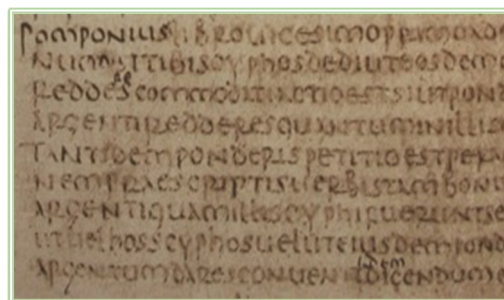 POMPONIUSLIBROUICESIMOPRIMOAD
NUMSITIBISCYPHOSDEDIUTEOSDEMM
re
REDDESCOMMODATIACTIOESTSIUTPOND
ARGENTIREDDERESQUANTUMINILLIS
TANTIDEMPONDERISPETITIOESTPER
NEMPRAESCRIPTISUERBISTAMBONI
ARGENTIQUAMILLISCYPHIFUERUNTSE
UTUELHOSSCYPHOSUELUTEIUSDEMPOND
idem
ARGENTUMDARESCONUENITDICENDUM